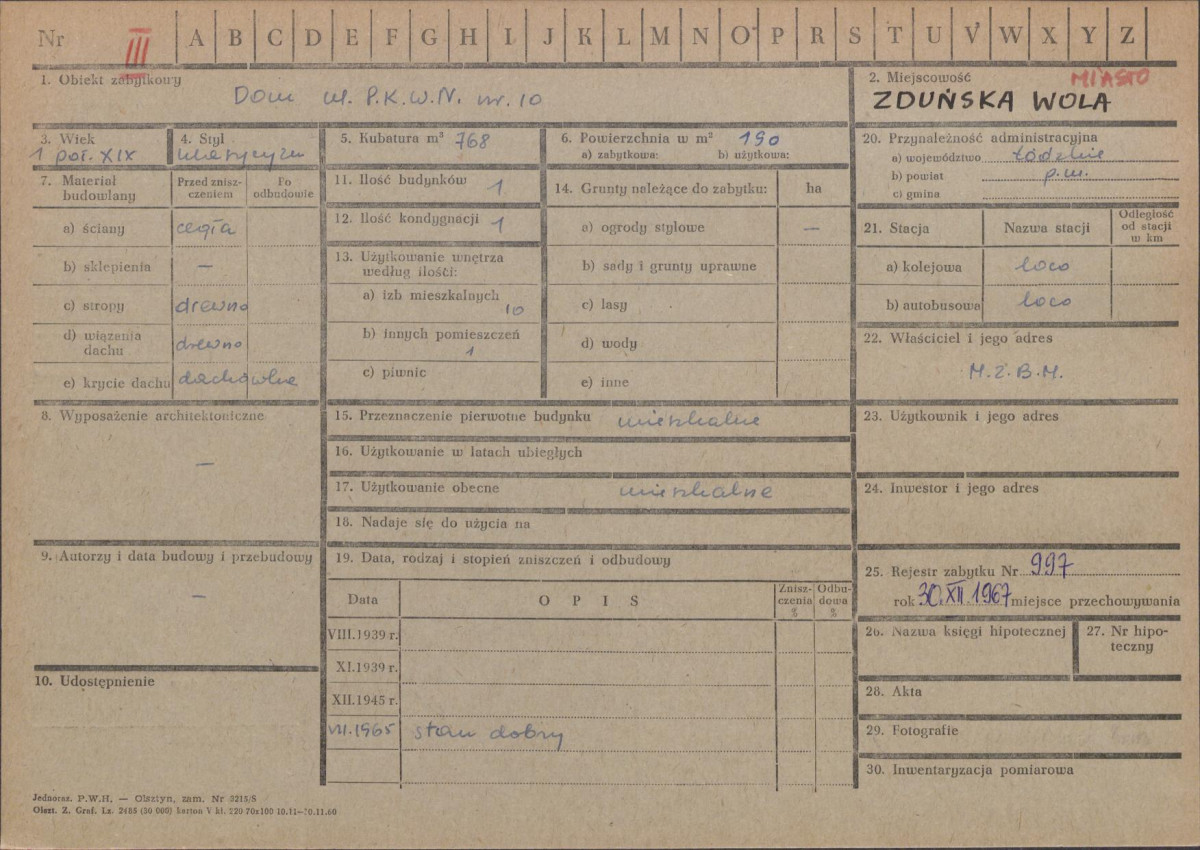 Nr III A B C D E F G H I J K L M N O P R S T U V W X Y Z
1. Obiekt zabytkowy
Dom ul. P.K.W.N. nr. 10
2. Miejscowość MIASTO
ZDUŃSKA WOLA
3. Wiek
1 poł. XIX
4. Styl
klasycyzm
5. Kubatura m³ 768
6. Powierzchnia w m² 190
a) zabytkowa: b) użytkowa:
7. Materiał budowlany
Przed zniszczeniem
Po odbudowie
a) ściany cegła
b) sklepienia —
c) stropy drewno
d) wiązania dachu drewno
e) krycie dachu dachówka
8. Wyposażenie architektoniczne
—
9. Autorzy i data budowy i przebudowy
—
10. Udostępnienie
11. Ilość budynków 1
12. Ilość kondygnacji 1
13. Użytkowanie wnętrza według ilości:
a) izb mieszkalnych
10
b) innych pomieszczeń
1
c) piwnic
14. Grunty należące do zabytku: ha
a) ogrody stylowe —
b) sady i grunty uprawne
c) lasy
d) wody
e) inne
15. Przeznaczenie pierwotne budynku mieszkalne
16. Użytkowanie w latach ubiegłych
17. Użytkowanie obecne mieszkalne
18. Nadaje się do użycia na
19. Data, rodzaj i stopień zniszczeń i odbudowy
Data
OPIS
Zniszczenia %
Odbudowa %
VIII.1939 r.
XI.1939 r.
XII.1945 r.
VII.1965 stan dobry
20. Przynależność administracyjna
a) województwo łódzkie
b) powiat p.m.
c) gmina
21. Stacja
Nazwa stacji
Odległość od stacji w km
a) kolejowa loco
b) autobusowa loco
22. Właściciel i jego adres
M.Z.B.M.
23. Użytkownik i jego adres
24. Inwestor i jego adres
25. Rejestr zabytku Nr 997
rok 30.XII 1967 miejsce przechowywania
26. Nazwa księgi hipotecznej
27. Nr hipoteczny
28. Akta
29. Fotografie
30. Inwentaryzacja pomiarowa
Jednoraz. P.W.H. — Olsztyn, zam. Nr 3215/S
Olszt. Z. Graf. Lz. 2485 (30 000) karton V kl. 220 70x100 10.11—10.11.60